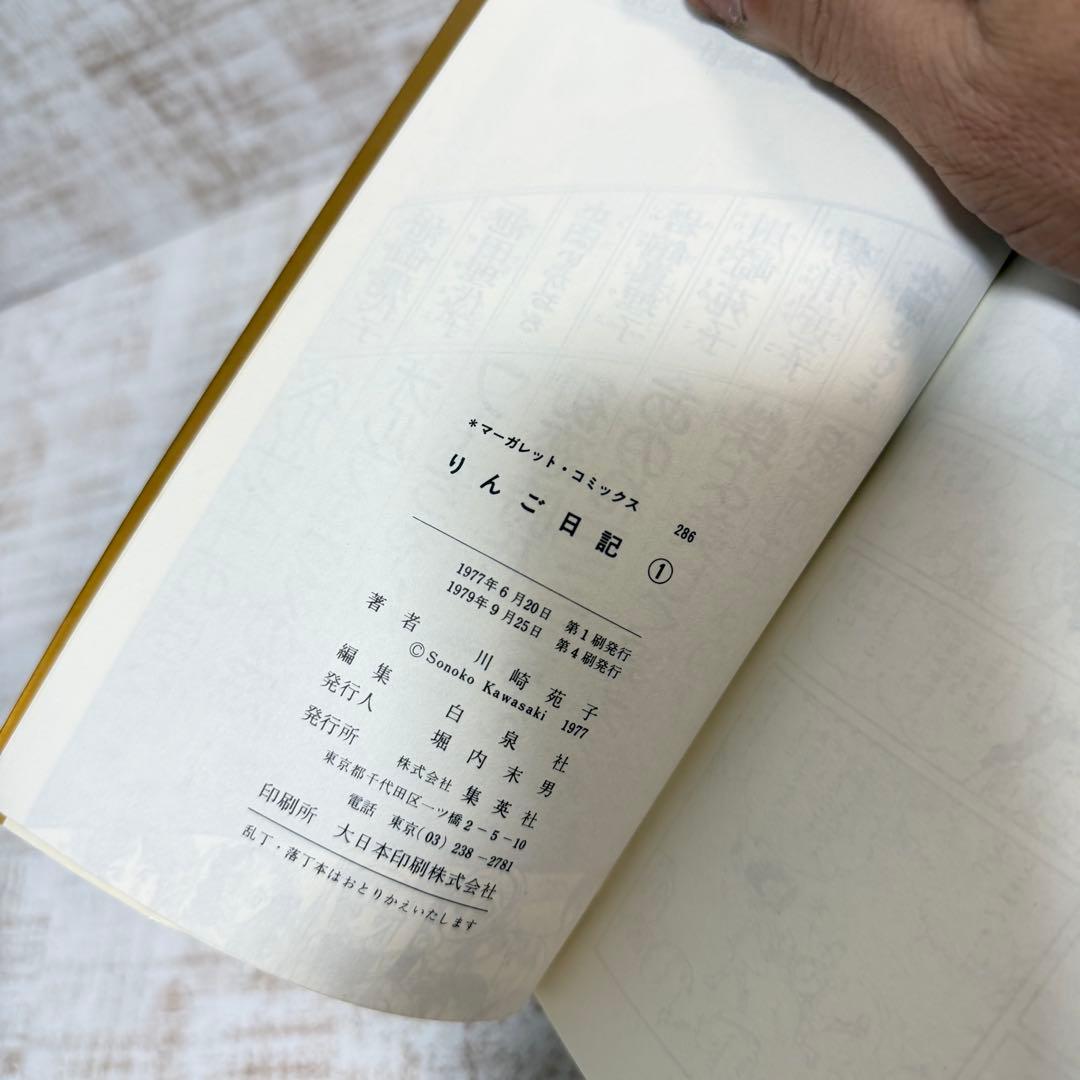 *マーガレット・コミックス 286
りんご日記 ①
1977年6月20日 第1刷発行
1979年9月25日 第4刷発行
著者 川崎苑子
©Sonoko Kawasaki 1977
編集 白泉社
発行人 堀内末男
発行所 株式会社 集英社
東京都千代田区一ツ橋2-5-10
電話 東京(03)238-2781
印刷所 大日本印刷株式会社
乱丁・落丁本はおとりかえいたします